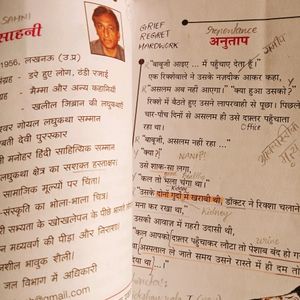 SAHNI
साहनी
1956, लखनऊ (उ.प्र)
संग्रह - डरे हुए लोग, ठंडी रजाई
संग्रह - मैग्मा और अन्य कहानियाँ
- खलील जिब्रान की लघुकथाएँ
श्वर गोयल लघुकथा सम्मान
बती देवी पुरस्कार
मनोहर हिंदी साहित्यिक सम्मान
लघुकथा क्षेत्र का सशक्त हस्ताक्षर
सामाजिक मूल्यों पर चिंता
-संस्कृति का भोला-भाला चित्र
री सभ्यता के खोखलेपन के पीछे भागते
मध्यवर्ग की पीड़ा और निराशा
नशील भावुक शैली
जल विभाग में अधिकारी
@gmail.com
GRIEF
REGRET
HARDWORK
Repentance
अनुताप
"बाबूजी आइए ... मैं पहुँचाए देता हूँ।"
एक रिक्शेवाले ने उसके नज़दीक आकर कहा,
"असलम अब नहीं आएगा।" "क्या हुआ उसको?"
रिक्शे में बैठते हुए उसने लापरवाही से पूछा। पिछले
चार-पाँच दिनों से असलम ही उसे दफ़्तर पहुँचाता
रहा था।
Office
"बाबूजी, असलम नहीं रहा ..."
"क्या?"
NANPI
उसे शाक-सा लगा,
"कल तो भला चंगा था।"
Kidney
"उसके दोनों गुर्दों में खराबी थी, डॉक्टर ने रिक्शा चलाने
मना कर रखा था,"
Kidney
उसकी आवाज़ में गहरी उदासी थी,
urine
"कल आपको दफ़्तर पहुँचाकर लौटा तो पेशाब बंद हो ग
अस्पताल ले जाते समय उसने रास्ते में ही दम तो